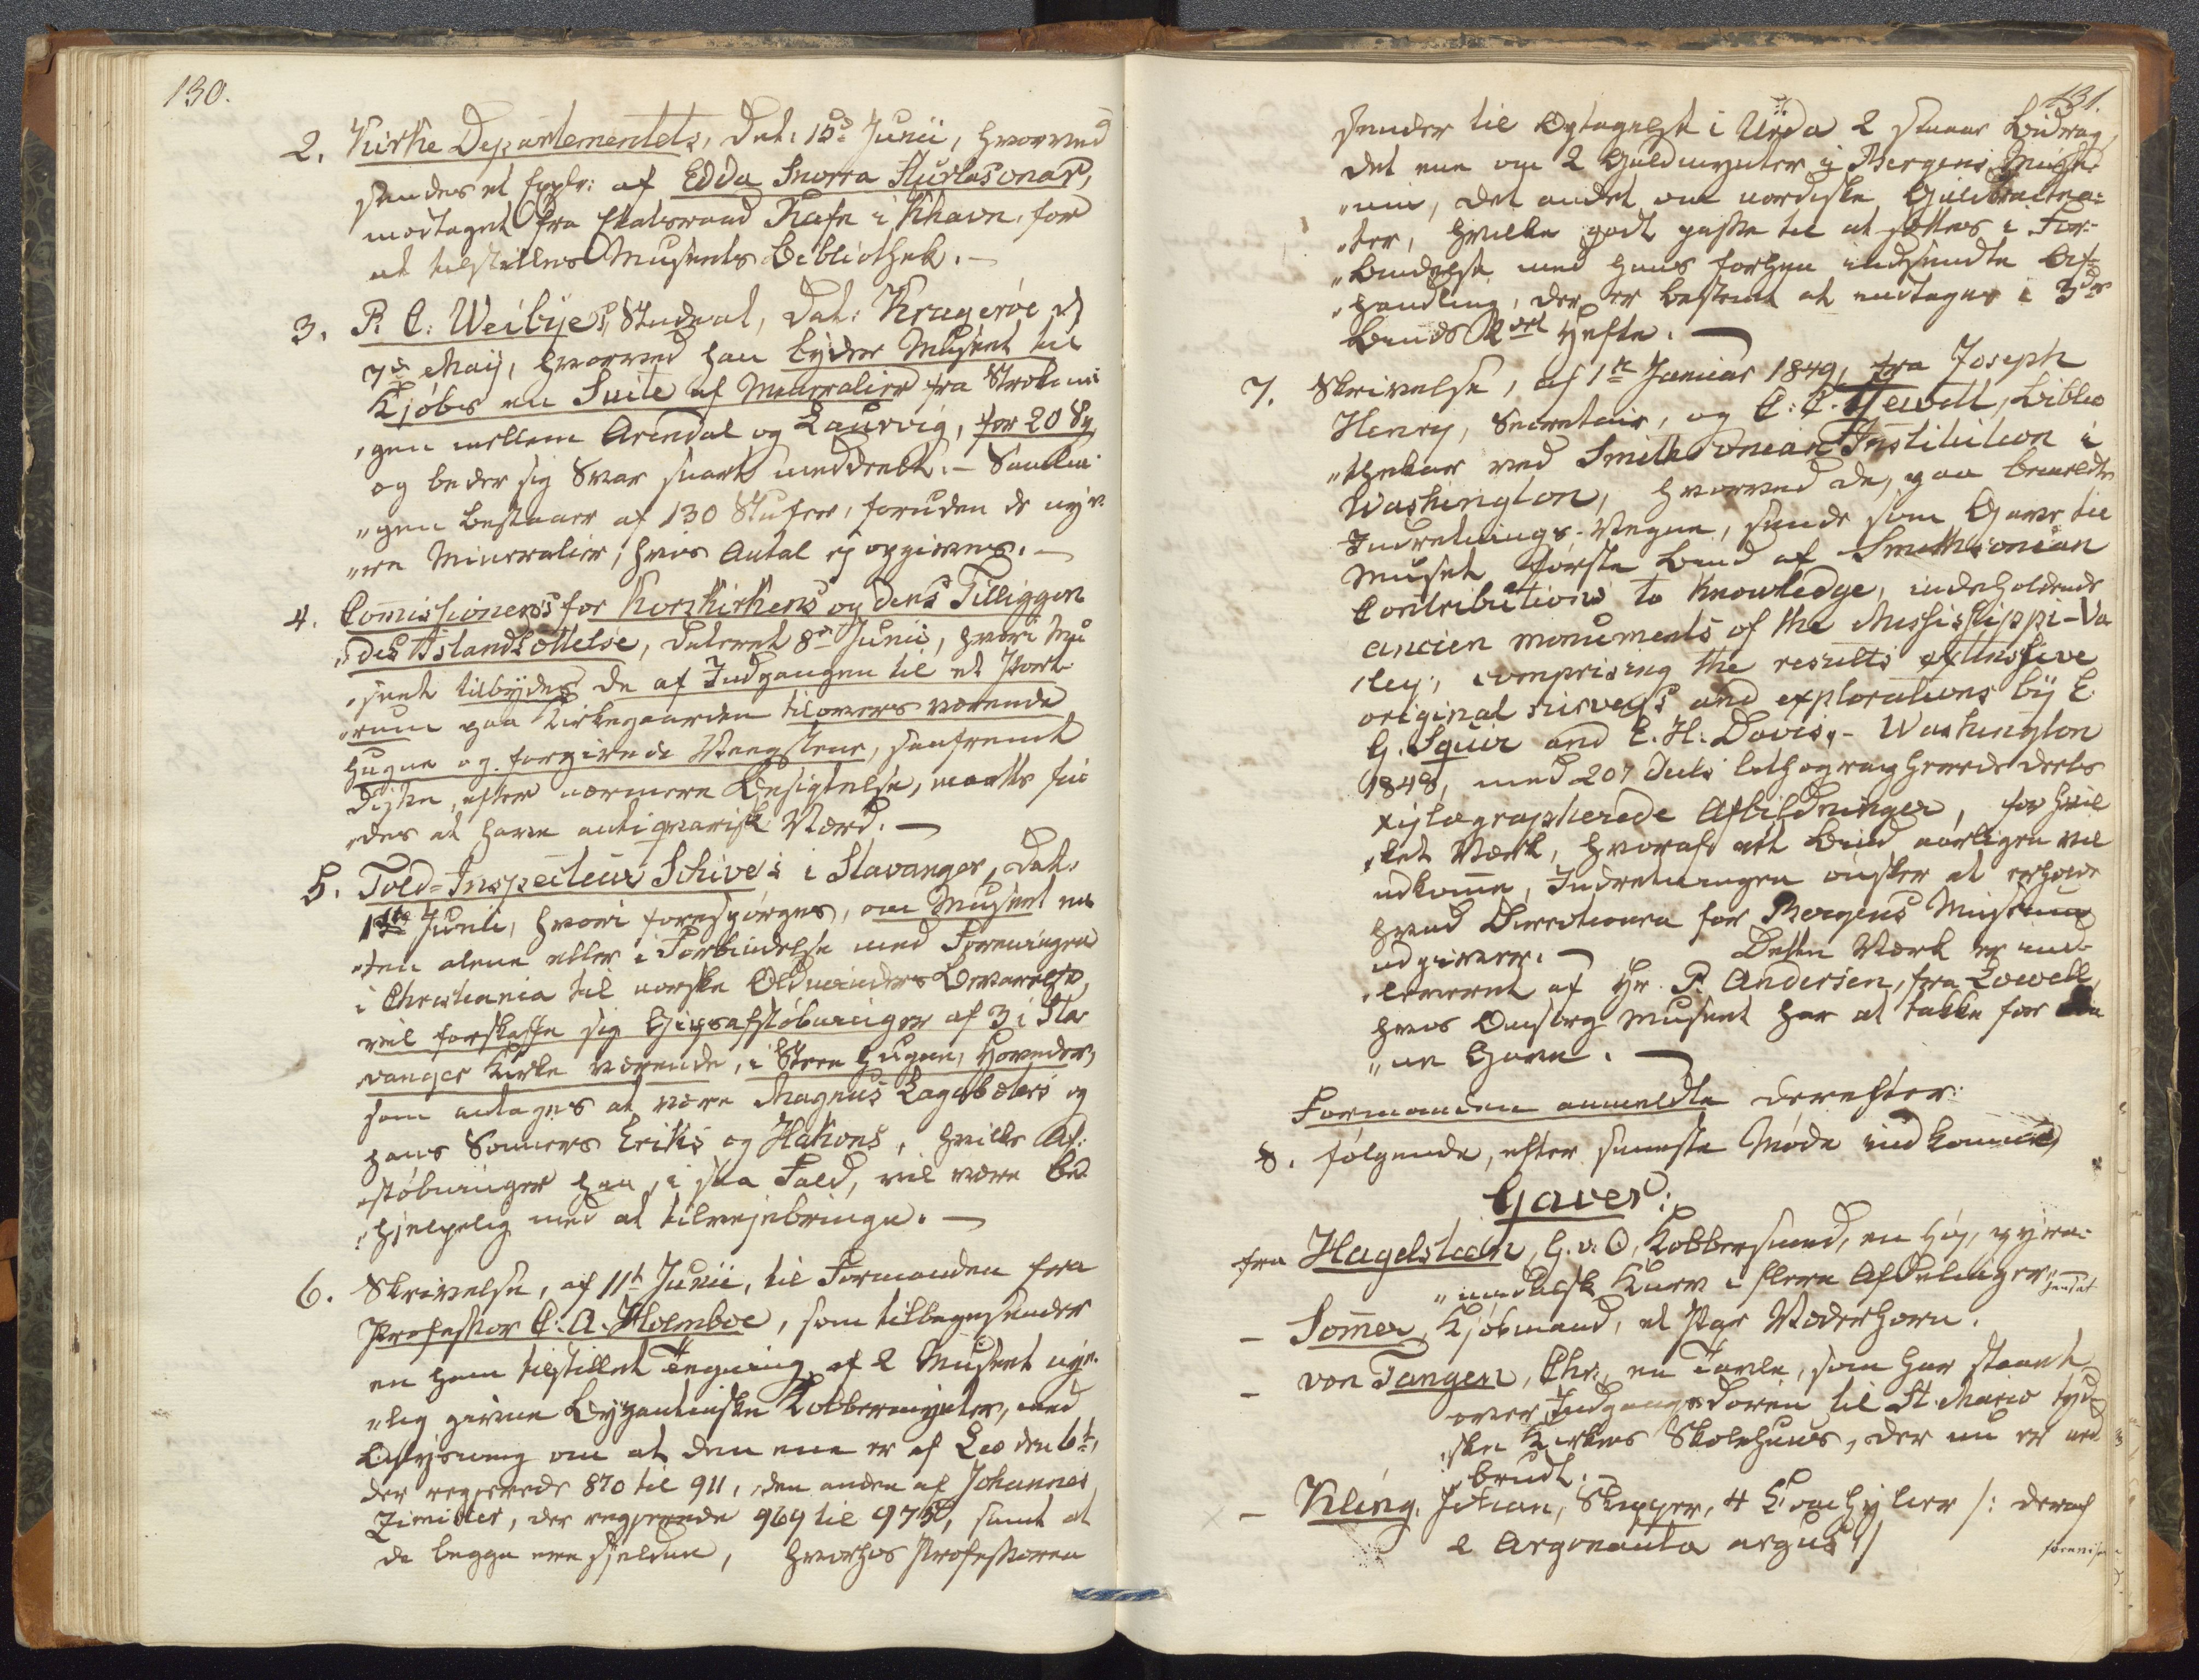 130.
2. Kirke Departementets, dat: 15d Junii, hvorved
sendes et Explr: af Edda Snorra Sturlasonar,
modtaget fra Etatsraad Rafn i Khavn, for
at tilstilles Museets Bibliothek. —
3. P. C: Weibye's, Student, dat: Kragerøe d
7de May, hvorved han byder Museet til
Kjøbs en Suite af Mineralier fra Strøknin
„gen mellem Arendal og Laurvig, for 20 Sp
og beder sig Svar snart meddeelt. — Samlin
„gen bestaaer af 130 Stufer, foruden de nye
„re Mineralier, hvis Antal ej opgives. —
4. Comissionens for Korskirkens og dens Tilliggen
„des Istandsættelse, dateret 8de Junii, hvori Mu
„seet tilbydes de af Indgangen til et Port
„rum paa Kirkegaarden tilovers værende
hugne og forgivede Steene, saafremt
disse, efter nærmere Besigtelse, maatte fin
„des at have antiqvarisk Værd. —
5. Told-Inspecteur Schive's i Stavanger, dat:
1ste Junii, hvori forespørges, om Museet en
„ten alene eller i Forbindelse med Foreningen
i Christiania til norske Oldminders Bevarelse,
vil forskaffe sig Gipsafstøbninger af 3 i Sta
„vanger Kirke værende, i Steen hugne, Hoveder,
som antages at være Magnus Lagabøters og
hans Sønners Eriks og Hakons, hvilke Af:
„støbninger han, i saa Fald, vil være be
„hjelpelig med at tilvejebringe. —
6. Skrivelse, af 11te Junii, til Formanden fra
Professor C. A. Holmboe, som tilbagesender
en ham tilstillet Tegning af 2 Museet nye
„lig givne Byzantinske Kobbermynter, med
Oplysning om at den ene er af Leo den 6te,
der regjerede 870 til 911, den anden af Johannes
Zimisces, der regjerede 969 til 975, samt at
de begge ere sjeldne, hvorhos Professoren
131.
sender til Optagelse i Urda 2 smaa Bidrag,
det ene om 2 Guldmynter i Bergens Muse
„um, det andet om nordiske Guldbractea-
„ter, hvilke godt passe til at sættes i For-
„bindelse med hans forhen indsendte Af
„handling, der er bestemt at indtages i 3de
Binds 2det Hefte. —
7. Skrivelse, af 1te Januar 1849, fra Joseph
Henry, Secretair, og C: C. Jewett, Biblio
„thekar ved Smithsonian Institution i
Washington, hvorved de, paa bemeldte
Indretnings Vegne, sende som Gave til
Museet første Bind af Smithsonian
Contributions to Knowledge, indeholdende
ancien monuments of the Missisippi-Va
„ley, comprising the results extensive
original surveys and explorations by E.
G. Squir and E. H. Davis. — Washington
1848, med 207 deels lithographerede deels
xylographerede Afbildninger, for hvil
„ket Værk, hvoraf eet Bind aarligen vil
udkomme, Indretningen ønsker at erholde
hvad Directionen for Bergens Museum
udgiver. — Dette Værk er ind
„leveret af Hr. P. Andersen, fra Lowell,
hvis Omsorg Museet har at takke for den
„ne Gave. —
Formanden anmeldte derefter:
8. følgende, efter seneste Møde indkomne
Gaver:
fra Hagelsteen, G. v. O, Kobbersmed, en høj, pyra-
„midalsk Kurv i flere Afdelinger
— Sommer, Kjøbmand, et Par Væderhorn.
— von Tangen, Chr., en Tavle, som har staaet
over Indgangsdøren til St. Mariæ tyd
„ske Kirkes Skolehuus, der nu er ned
„brudt. —
— Kling, Johan, Skipper, 4 Conchylier /: deraf
2 Argonauta argus :/